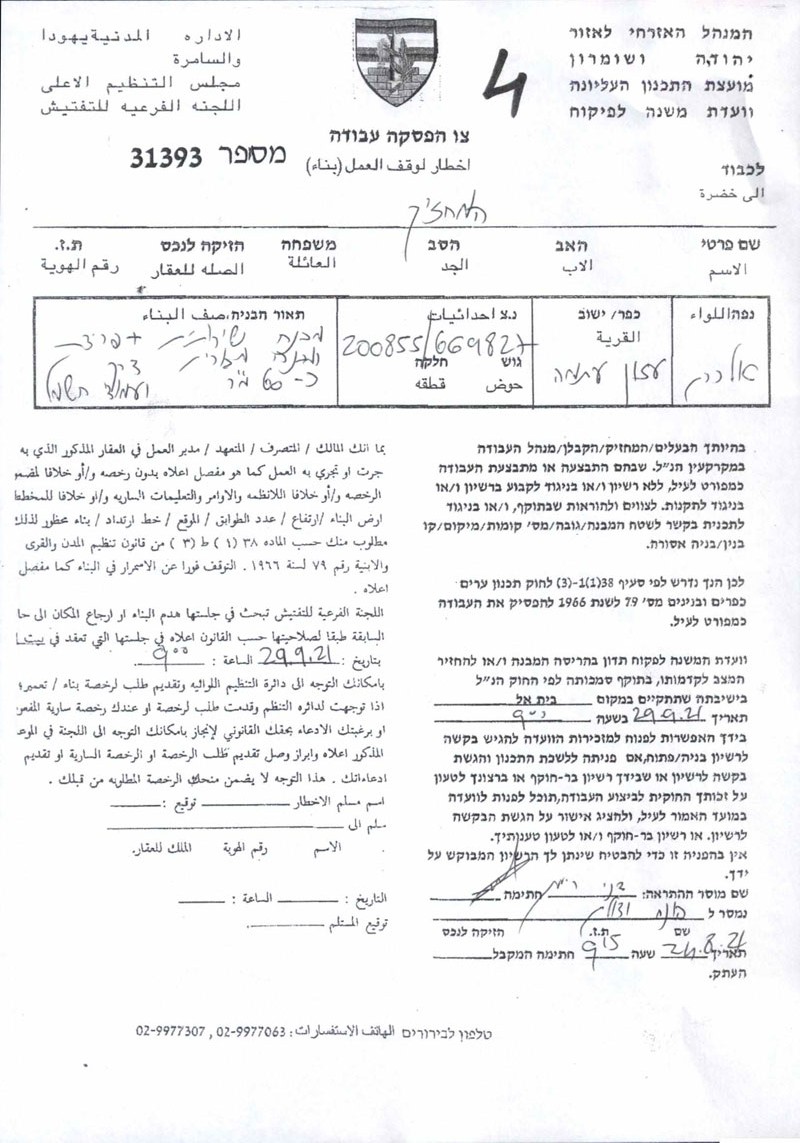 המנהל האזרחי לאזור
יהודה ושומרון
מועצת התכנון העליונה
וועדת משנה לפיקוח
الاداره المدنية يهودا
والسامرة
مجلس التنظيم الاعلى
اللجنه الفرعيه للتفتيش
4
צו הפסקה עבודה
اخطار لوقف العمل (بناء)
מספר 31393
לכבוד
الى خضرة
המחזיק
שם פרטי האב הסב משפחה הזיקה לנכס ת.ז.
الاسم الاب الجد العائلة الصله للعقار رقم الهوية
נפה/اللواء כפר/ ישוב נ.צ احداثيات תאור הבניה،صف البناء
القرية
200855/669827
גוש חלקה
حوض قطقه
עזון עתמה
מבנה
כ-60 מ"ר
ועמוד חשמל
בהיותך הבעלים/המחזיק/הקבלן/מנהל העבודה
במקרקעין הנ"ל. שבהם התבצעה או מתבצעת העבודה
כמפורט לעיל, ללא רשיון ו/או בניגוד לקבוע ברשיון ו/או
בניגוד לתקנות. לצווים ולהוראות שבתוקף, ו/או בניגוד
לתכנית בקשר לשטח המבנה/גובה/מס' קומות/מיקום/קו
בנין/בניה אסורה.
לכן הנך נדרש לפי סעיף 38(1)-(3) לחוק תכנון ערים
כפרים ובנינים מס' 79 לשנת 1966 להפסיק את העבודה
כמפורט לעיל.
וועדת המשנה לפקוח תדון בהריסה המבנה ו/או להחזיר
המצב לקדמותו, בתוקף סמכותה לפי החוק הנ"ל
בישיבתה שתתקיים במקום בית אל
תאריך 29.9.21 בשעה 9:00
בידך האפשרות לפנות למזכירות הוועדה להגיש בקשה
לרשיון בניה/פתוח,אם פניתה ללשכת התכנון והגשת
בקשה לרשיון או שבידך רשיון בר-חוקף או ברצונך לטעון
על זכותך החוקית לביצוע העבודה,תוכל לפנות לוועדה
במועד האמור לעיל, ולהציג אישור על הגשת הבקשה
לרשיון. או רשיון בר-חוקף ו/או לטעון טענותיך.
אין בהפניה זו כדי להבטיח שינתן לך הרשיון המבוקש על
ידך.
שם מוסר ההתראה: חתימה
נמסר ל
שם ת.ז. הזיקה לנכס
תאריך 24.8.21 שעה 9:15 חתימה המקבל
העתק.
بما انك المالك / المتصرف / المتعهد / مدير العمل في العقار المذكور الذي به
جرت او تجري به العمل كما هو مفصل اعلاه بدون رخصه و/أو خلافا لمضمو
الرخصه و/أو خلافا للانظمه والاوامر والتعليمات الساريه و/او خلافا للمخطط
ارض البناء /ارتفاع / عدد الطوابق / الموقع / خط ارتداد / بناء محظور لذلك
مطلوب منك حسب الماده ٣٨ (١ ) ط (٣ ) من قانون تنظيم المدن والقرى
والابنية رقم ٧٩ لسنة ١٩٦٦ . التوقف فورا عن الاسمرار في البناء كما مفصل
اعلاه .
اللجنة الفرعية للتفتيش تبحث في جلستها هدم البناء او ارجاع المكان الى حا
السابقة طبقا لصلاحيتها حسب القانون اعلاه في جلستها التي تعقد في
بتاريخ : 29.9.21 الساعة : 9:00
بامكانك التوجه الى دائرة التنظيم اللوائيه وتقديم طلب لرخصة بناء / تعمير؛
اذا توجهت لدائره التنظم وقدمت طلب لرخصة او عندك رخصة سارية المفعو
او برغبتك الادعاء بحقك القانوني لإنجاز بامكانك التوجه الى اللجنة في الموعد
المذكور اعلاه وابراز وصل تقديم طلب الرخصة او الرخصة السارية او تقديم
ادعاءاتك . هذا التوجه لا يضمن منحك الرخصة المطلوبه من قبلك .
اسم مسلم الاخطار توقيع :
سلم الى
الاسم رقم الهوية الملك للعقار.
التاريخ : الساعة :
توقيع المستلم
טלפון לבירורים الهاتف الاستفسارات: 02-9977063 , 02-9977307